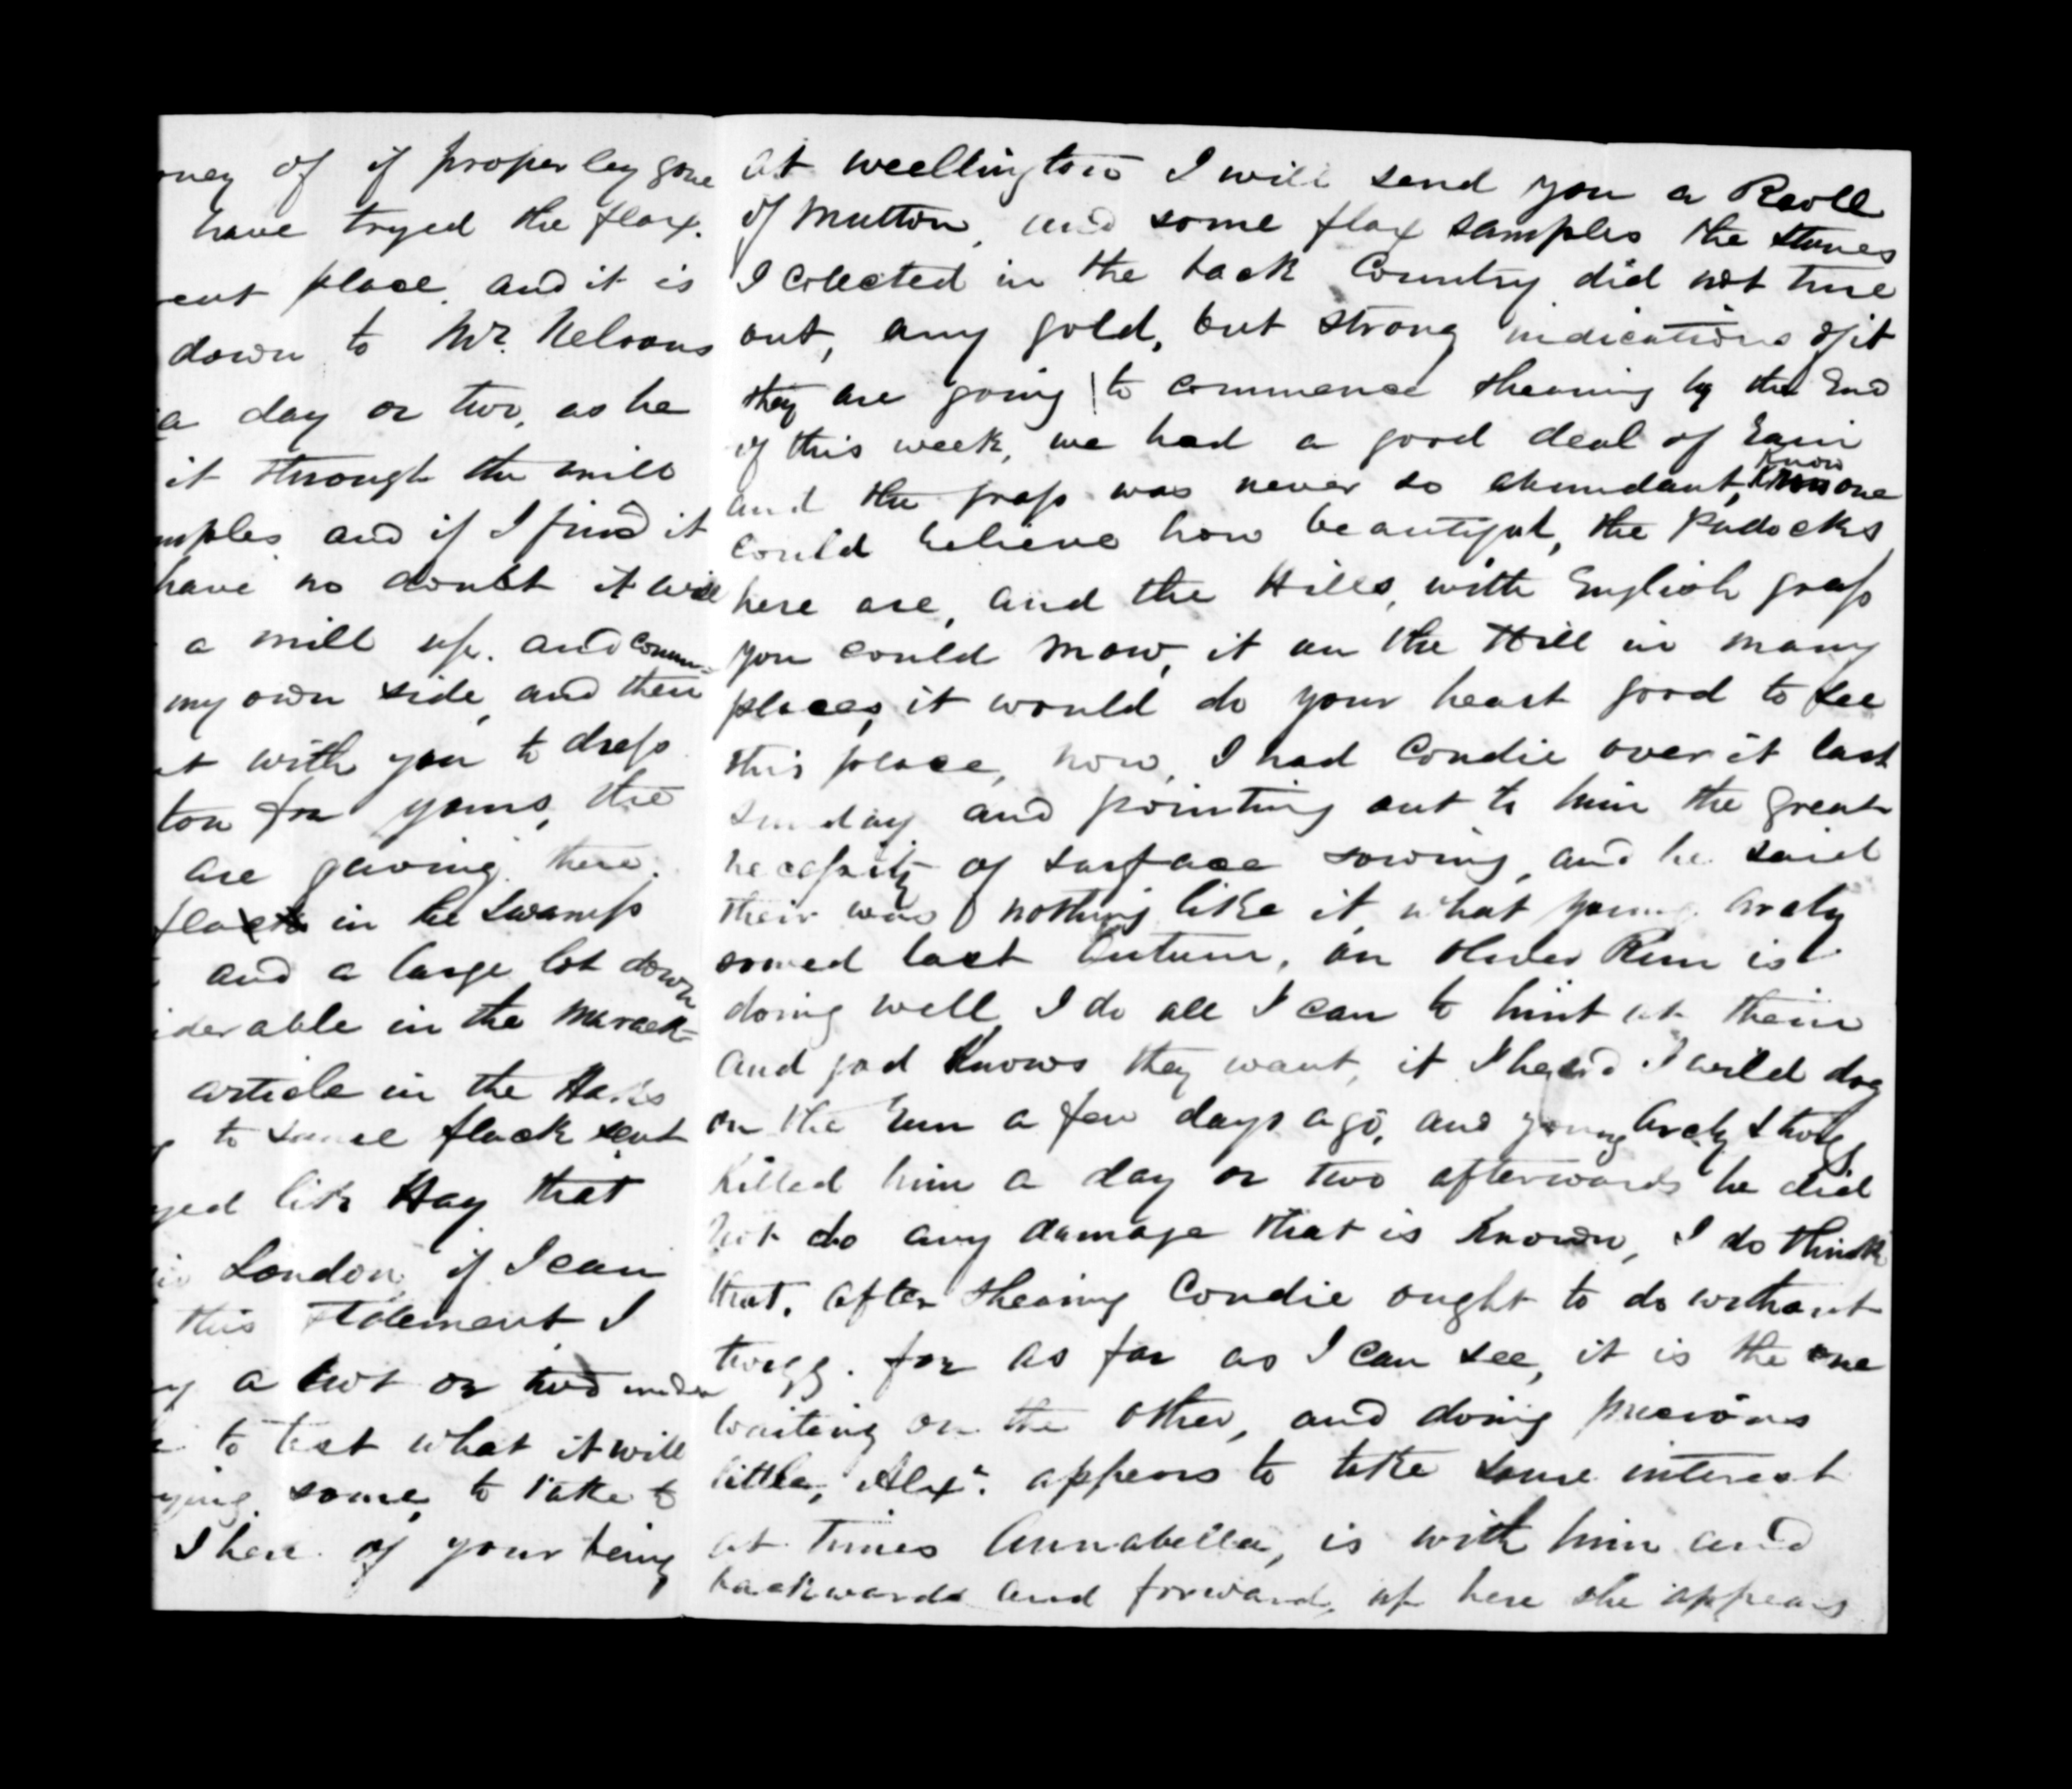 oney of if properley gone
have tryed the flax.
rent place. and it is
down to Mr. Nelsons
a day or two, as he
it through the mill
mples and if I find it
have no doubt it will
a mill up. and comm-
my own side, and then
at with you to dress
ton for yours, the
are there.
in he Swamp
and a large lot down
iderable in the Marack-
article in the
to flack sent
yed like Hay that
London if I can
this statement I
a cwt or two under
to test what it will
ying some, to take to
I here of your being
at weellington I will send you a Rooll
of Mutton, and some flax samples the stones
I colected in the back Country did not turne
out, any gold, but strong indications of it
they are going to commence shearing by the End
of this week, we had a good deal of Rain
and the grass was never so abundant, Know one
could believe how beautiful, the Padocks
here are, and the Hills, with English grass
you could mow, it on the Hill in many
places, it would do your heart good to see
this place, now, I had Condie over it last
Sunday and pointing out to him the great
necessity of surface sowing, and he said
their was nothing like it, what young Arcly
sowed last Autumn, on Run is
doing well I do all I can to hint at them
and god Knows they want, it I heard a wild dog
on the Run a few days ago, and young Arcly & twigg
Killed him a day or two afterwards he did
not do any damage that is Known, I do think
that, after shearing Condie ought to do without
twigg. for as far as I can see, it is the one
waiting on the other, and doing precious
little, Alexr. appears to take some interest
at times Annabella, is with him and
backwards and forward, up here she appears